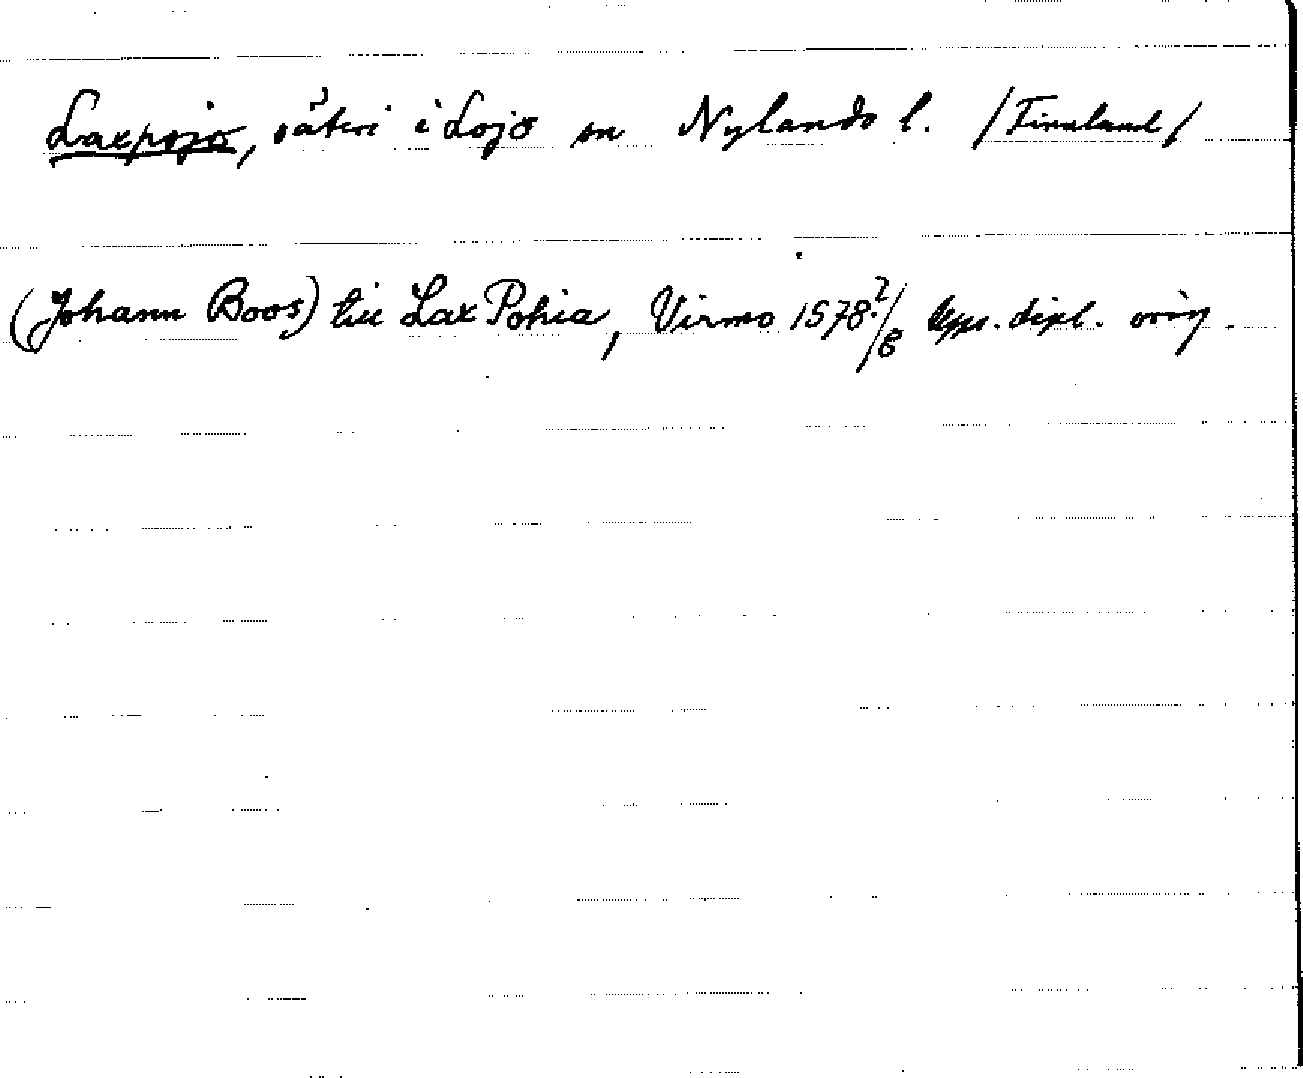 Laxpojo, säteri i Lojo sn Nylands l. /Finnland/
(Johann Boos) till Lax Pohia, Virmo 1578 2/8 Upps. dipl. orig.